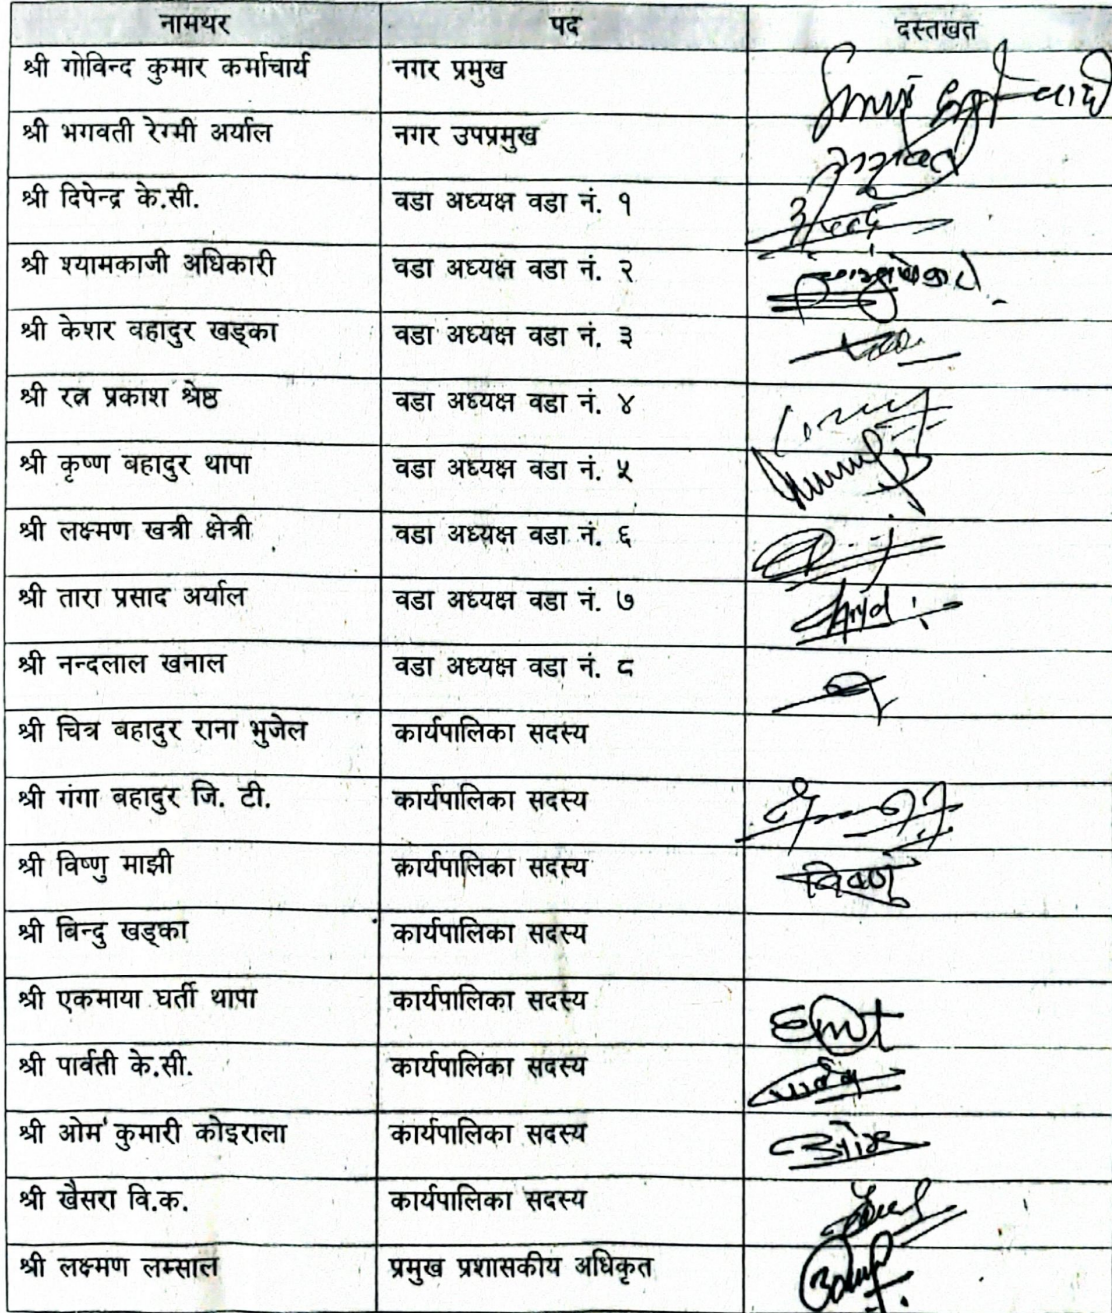 नामथर पद दस्तखत
श्री गोविन्द कुमार कर्माचार्य नगर प्रमुख
श्री भगवती रेग्मी अर्याल नगर उपप्रमुख
श्री दिपेन्द्र के.सी. वडा अध्यक्ष वडा नं. १
श्री श्यामकाजी अधिकारी वडा अध्यक्ष वडा नं. २
श्री केशर बहादुर खड्का वडा अध्यक्ष वडा नं. ३
श्री रत्न प्रकाश श्रेष्ठ वडा अध्यक्ष वडा नं. ४
श्री कृष्ण बहादुर थापा वडा अध्यक्ष वडा नं. ५
श्री लक्ष्मण खत्री क्षेत्री वडा अध्यक्ष वडा नं. ६
श्री तारा प्रसाद अर्याल वडा अध्यक्ष वडा नं. ७
श्री नन्दलाल खनाल वडा अध्यक्ष वडा नं. ८
श्री चित्र बहादुर राना भुजेल कार्यपालिका सदस्य
श्री गंगा बहादुर जि. टी. कार्यपालिका सदस्य
श्री विष्णु माझी कार्यपालिका सदस्य विष्णु
श्री बिन्दु खड्का कार्यपालिका सदस्य
श्री एकमाया घर्ती थापा कार्यपालिका सदस्य
श्री पार्वती के.सी. कार्यपालिका सदस्य
श्री ओम कुमारी कोइराला कार्यपालिका सदस्य
श्री खैसरा वि.क. कार्यपालिका सदस्य
श्री लक्ष्मण लम्साल प्रमुख प्रशासकीय अधिकृत